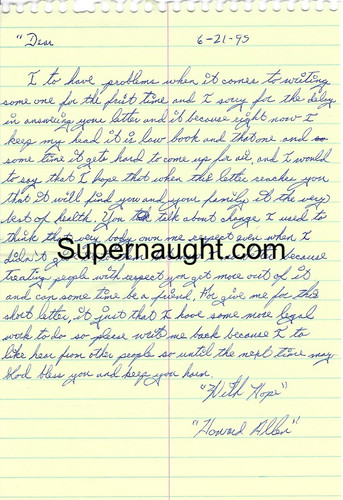 "Dear 6-21-95
I to have problems when it comes to writing
some one for the first time and I sorry for the delay
in answeing your letter and it because right now I
keep my head it is law book and that one and so
some time it gets hard to come up for air, and I would
to say that I hope that when the letter reaches you
that it will find you and your family it the very
best of health. You talk about change I used to
think that very body own me respect even when I
didn't
Supernaught.com
because
treating people with respect you get more out of it
and can some time be a friend. For give me for this
short letter, it just that I have some more legal
work to do so please write me back because I to
like hear from other people so until the next time may
God bless you and keep you harm.
"With Hope"
"Howard Allen"